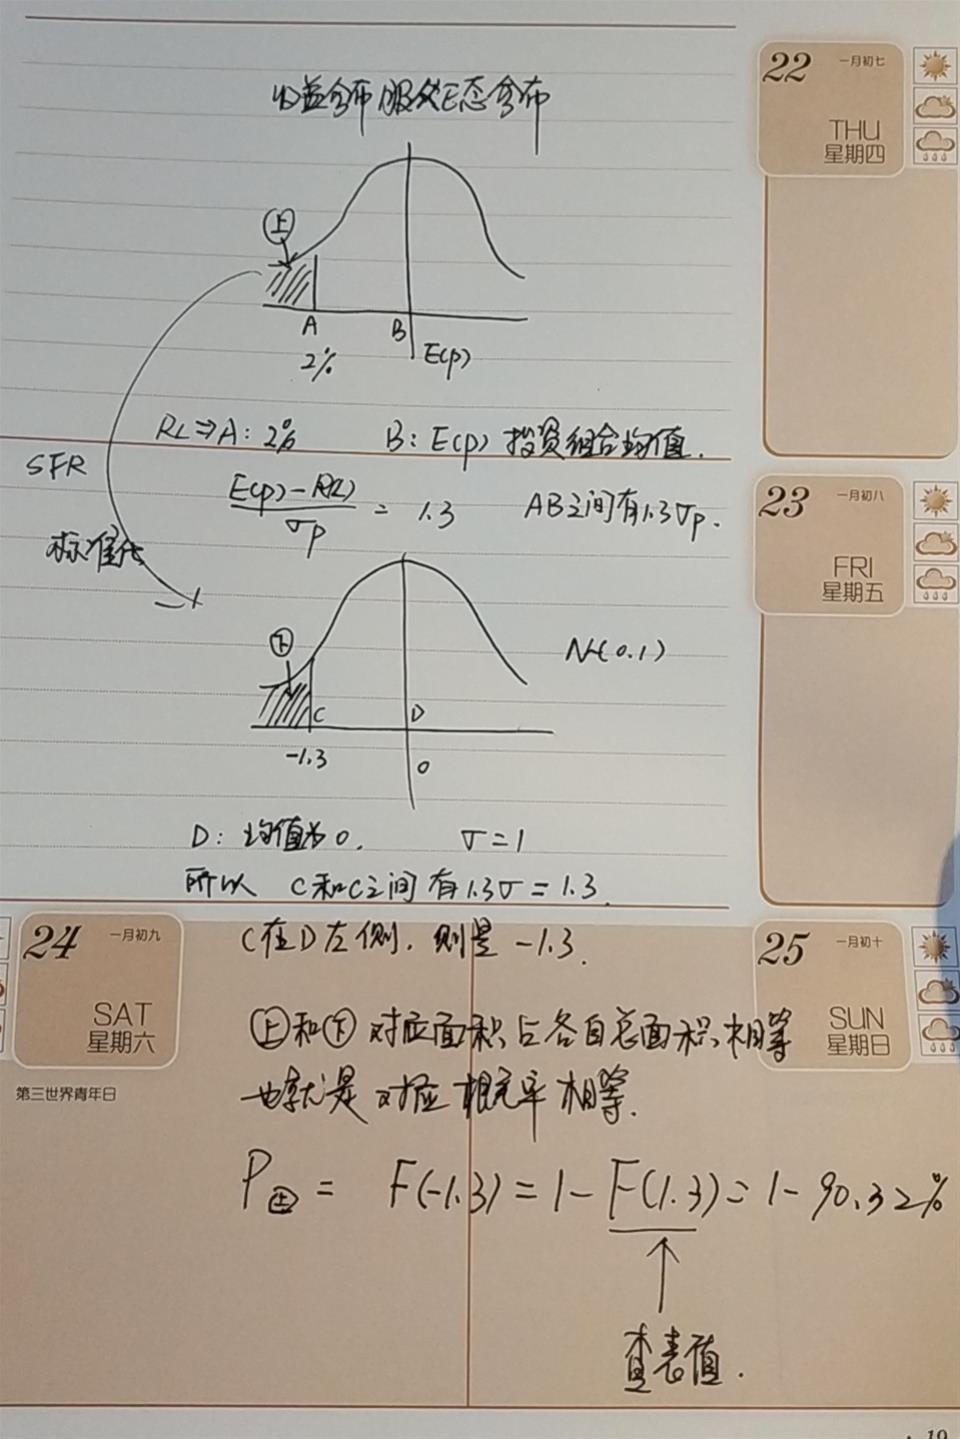 22 一月初七
THU
星期四
收益分布服从正态分布
上
A B
2% E(p)
RL⇒A: 2% B: E(p) 投资组合均值.
SFR
E(p)-R(L)
σp
= 1.3 AB之间有1.3σp.
23 一月初八
FRI
星期五
标准化
下
N~(0.1)
C D
-1.3 0
D: 均值为0. σ=1
所以 C和C之间有1.3σ=1.3.
C在D左侧. 则是 -1.3.
24 一月初九
SAT
星期六
第三世界青年日
25 一月初十
SUN
星期日
上和下对应面积占各自总面积相等
也就是对应概率相等.
P上 = F(-1.3)=1-F(1.3)=1-90.32%
查表值.
19